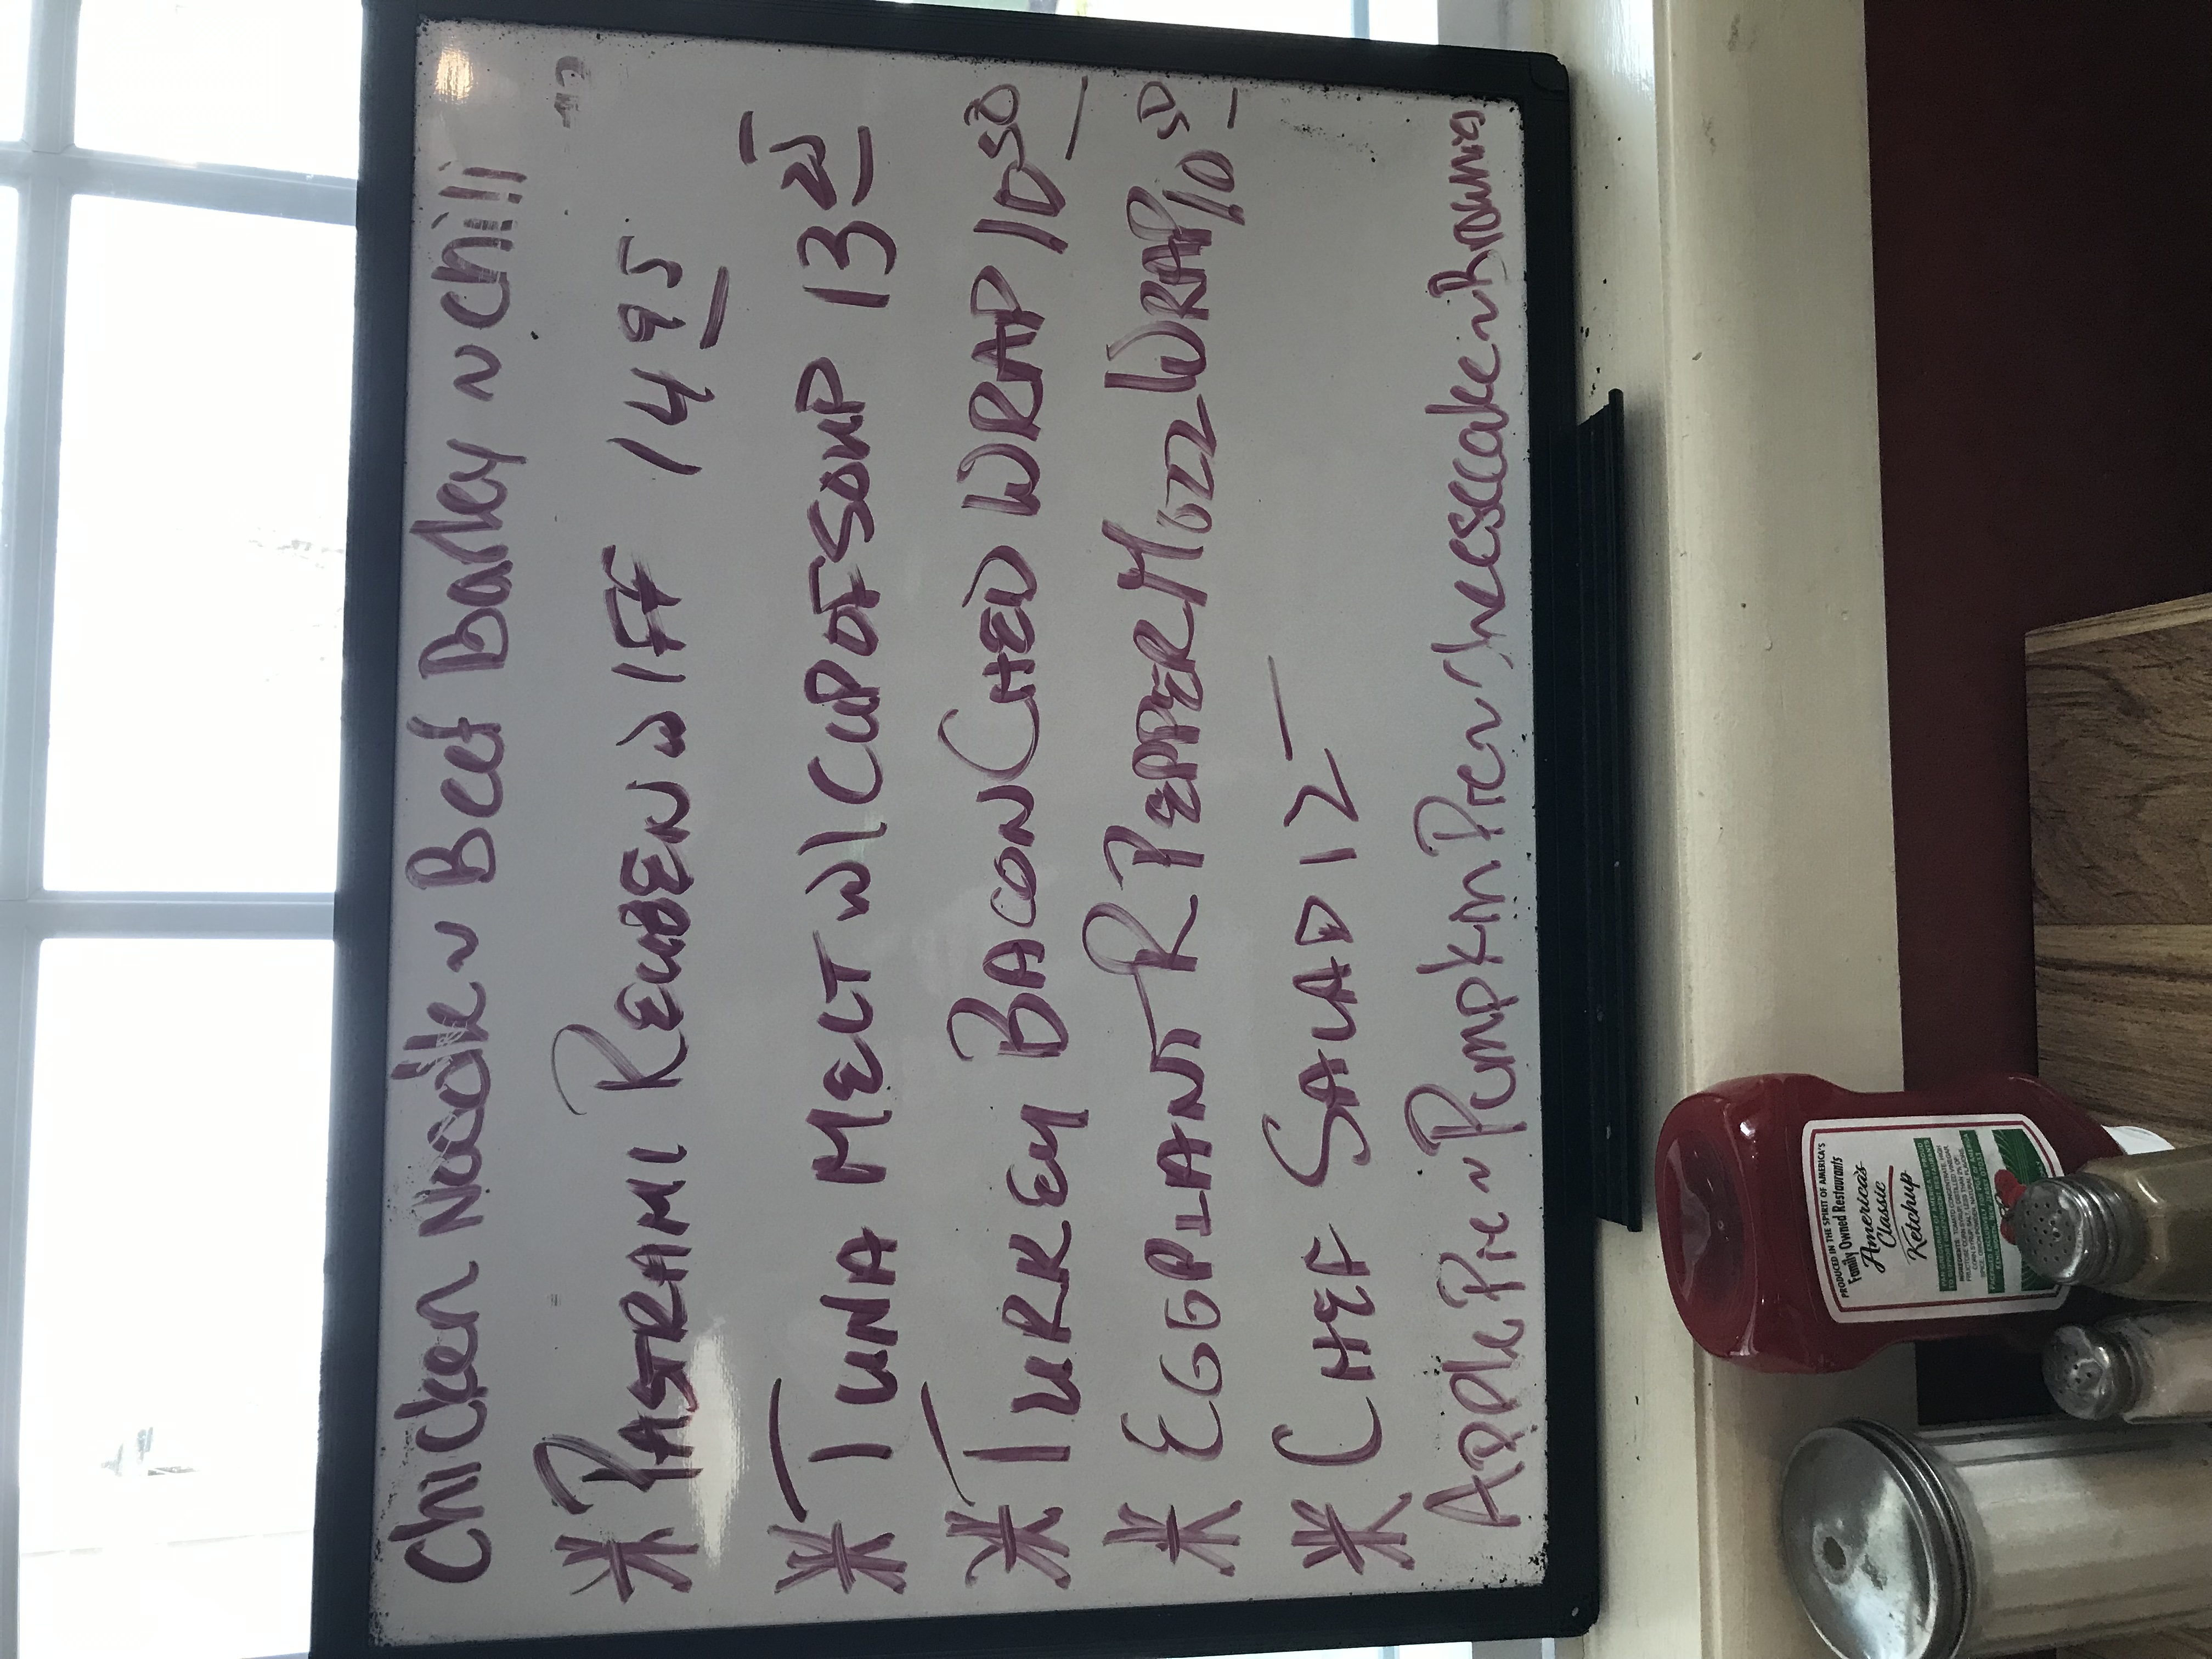 Chicken Noodle ~ Beef Barley ~ Chili
* PASTRAMI REUBEN W/FF 14 95
* TUNA MELT W/ CUP OF SOUP 13
* TURKEY BACON CHED WRAP 10 50
* EGGPLANT R PEPPER MOZZ WRAP 10 50
* CHEF SALAD 12 —
Apple Pie ~ Pumpkin Pie ~ Cheesecake ~ Brownie
PRODUCED IN THE SPIRIT OF AMERICA'S
Family Owned Restaurants
America's
Classic
Ketchup